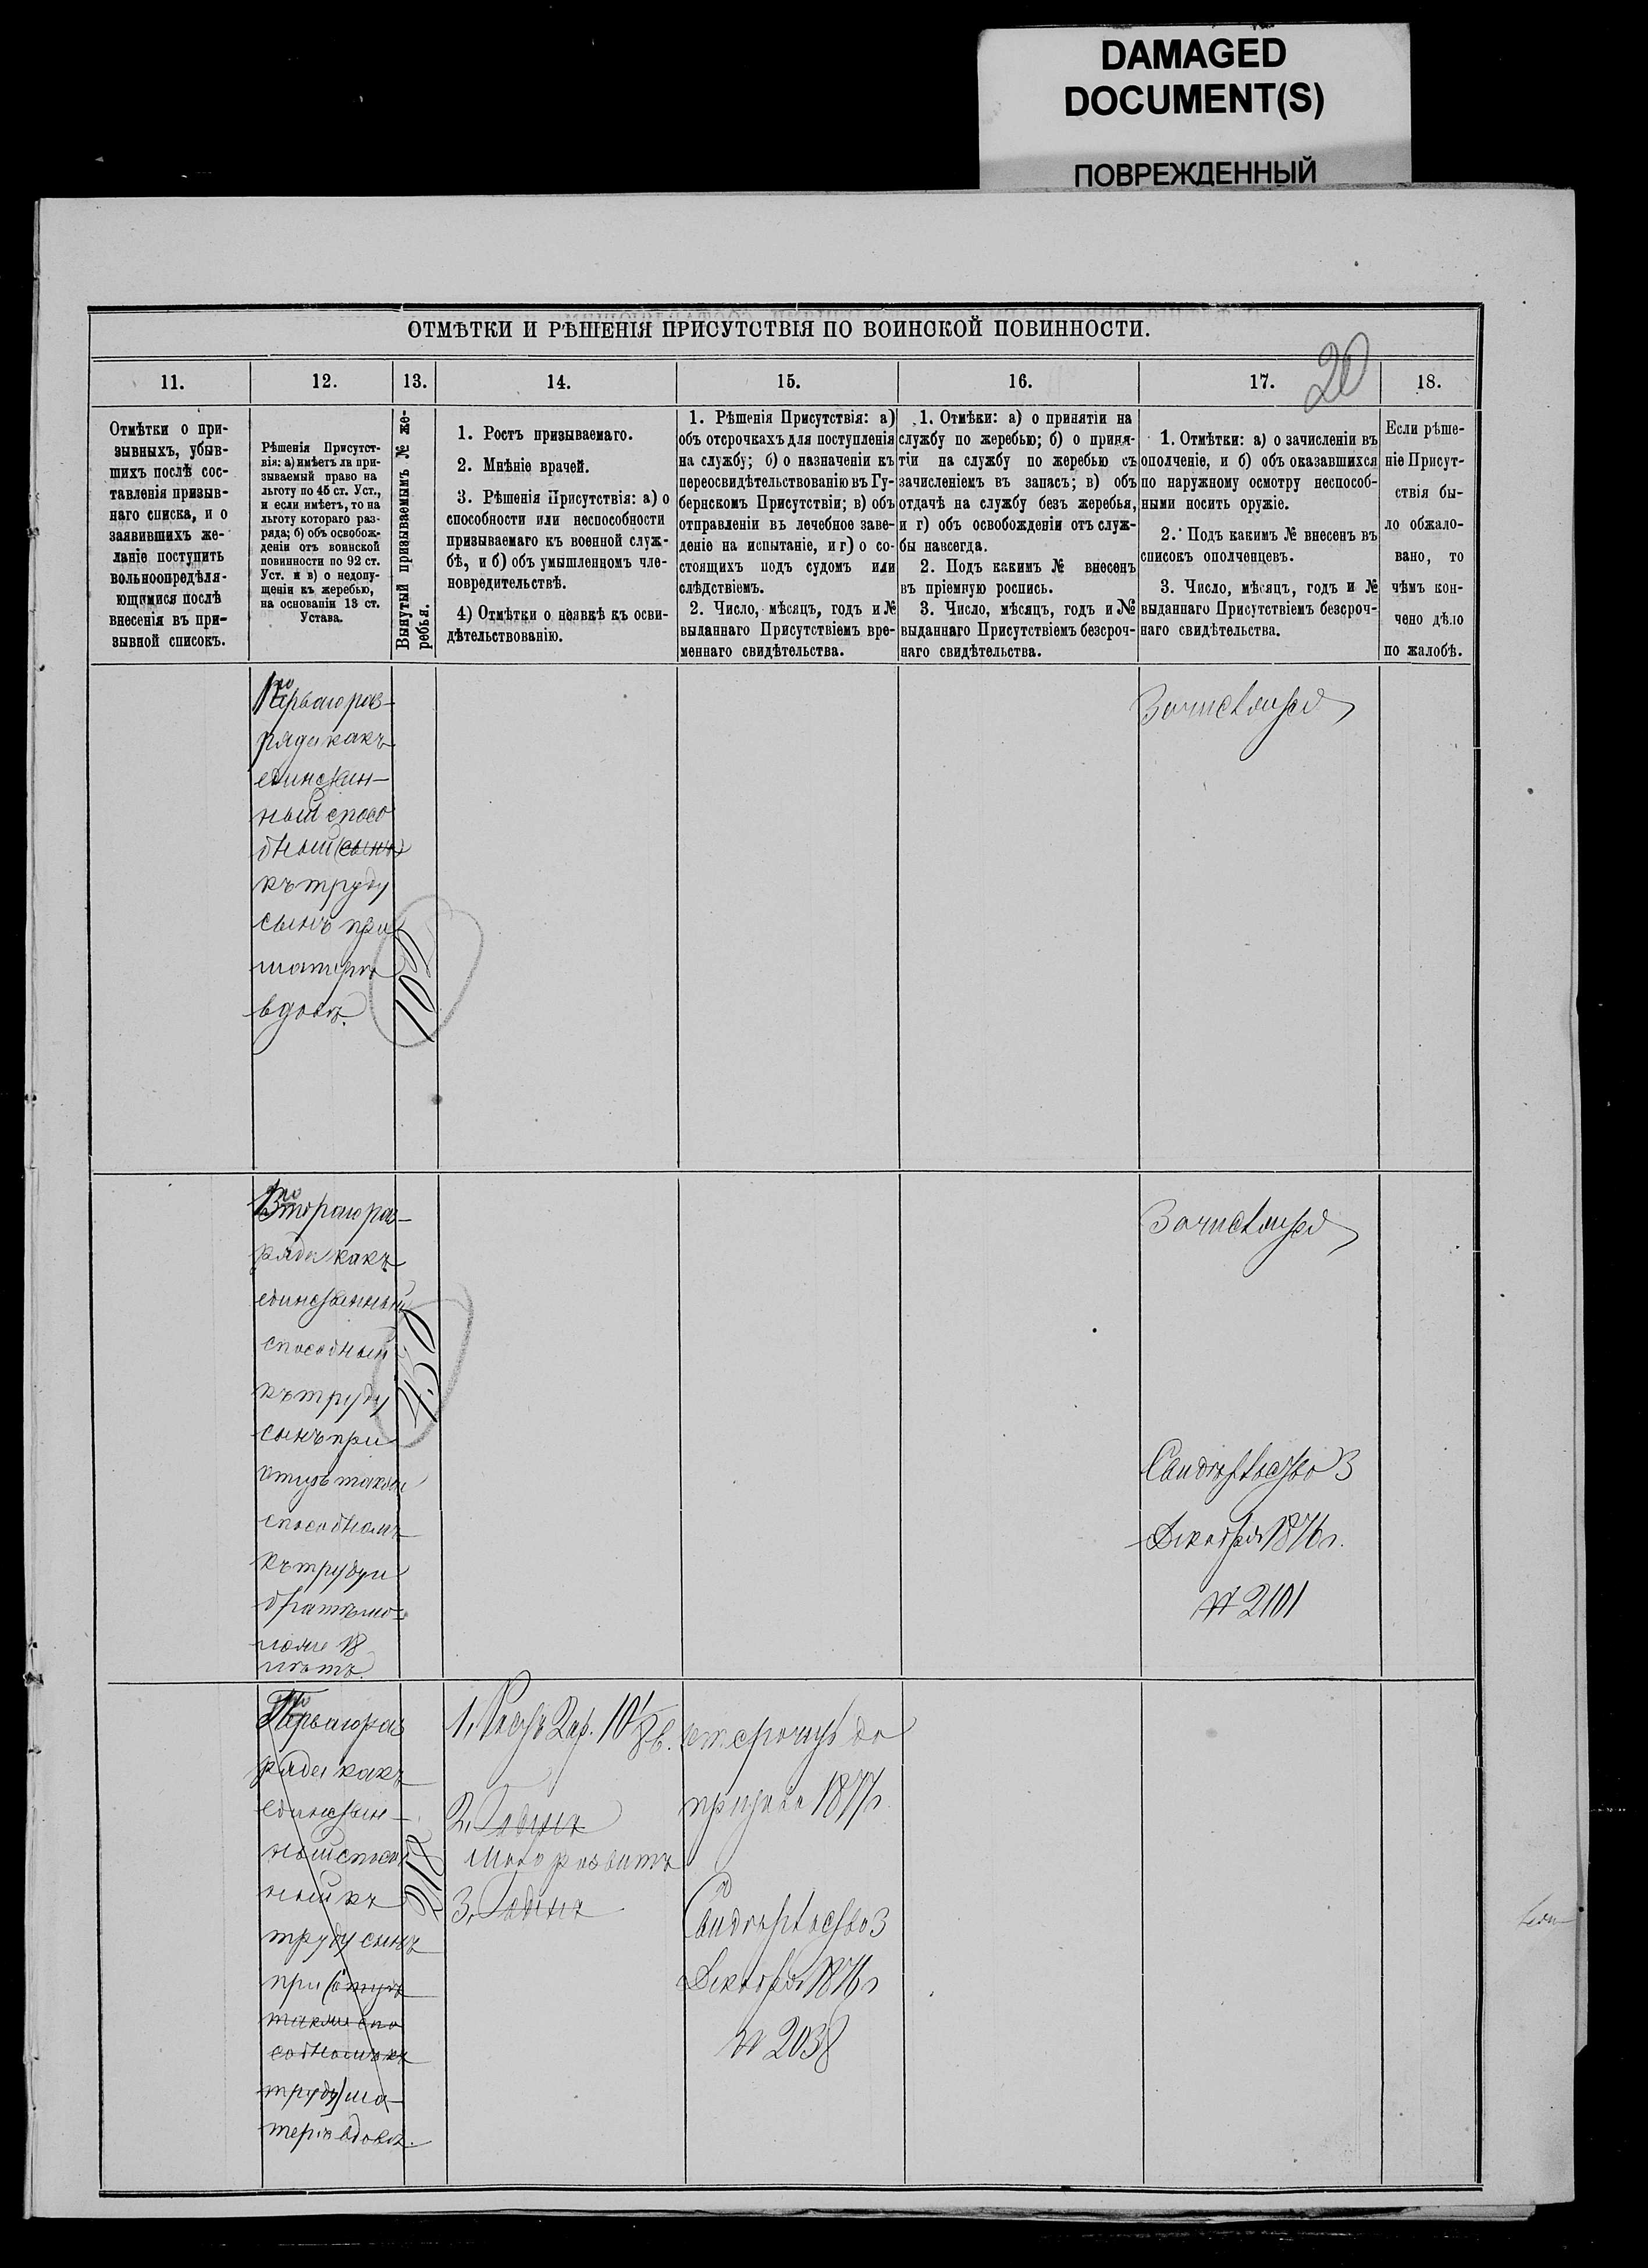 DAMAGED
DOCUMENT(S)
ПОВРЕЖДЕННЫЙ
ОТМѢТКИ И РѢШЕНІЯ ПРИСУТСТВІЯ ПО ВОИНСКОЙ ПОВИННОСТИ.
20
11.
12.
13.
14.
15.
16.
17.
18.
Отмѣтки о при-
зывныхъ, убыв-
шихъ послѣ сос-
тавленія призыв-
наго списка, и о
заявившихъ же-
ланіе поступить
вольноопредѣля-
ющимися послѣ
внесенія въ при-
зывной списокъ.
Рѣшенія Присутст-
вія: а) имѣетъ ли при-
зываемый право на
льготу по 45 ст. Уст.,
и если имѣетъ, то на
льготу котораго раз-
ряда; б) объ освобож-
деніи отъ воинской
повинности по 92 ст.
Уст. и в) о недопу-
щеніи къ жеребью,
на основаніи 13 ст.
Устава.
Вынутый призываемымъ № же-
ребья.
1. Ростъ призываемаго.
2. Мнѣніе врачей.
3. Рѣшенія Присутствія: а) о
способности или неспособности
призываемаго къ военной служ-
бѣ, и б) объ умышленномъ чле-
новредительствѣ.
4) Отмѣтки о неявкѣ къ осви-
дѣтельствованію.
1. Рѣшенія Присутствія: а)
объ отсрочкахъ для поступленія
на службу; б) о назначеніи къ
переосвидѣтельствованію въ Гу-
бернскомъ Присутствіи; в) объ
отправленіи въ лечебное заве-
деніе на испытаніе, и г) о со-
стоящихъ подъ судомъ или
слѣдствіемъ.
2. Число, мѣсяцъ, годъ и №
выданнаго Присутствіемъ вре-
меннаго свидѣтельства.
1. Отмѣки: а) о принятіи на
службу по жеребью; б) о приня-
тіи на службу по жеребью съ
зачисленіемъ въ запасъ; в) объ
отдачѣ на службу безъ жеребья,
и г) объ освобожденіи отъ служ-
бы навсегда.
2. Подъ какимъ № внесенъ
въ пріемную роспись.
3. Число, мѣсяцъ, годъ и №
выданнаго Присутствіемъ безсроч-
наго свидѣтельства.
1. Отмѣтки: а) о зачисленіи въ
ополченіе, и б) объ оказавшихся
по наружному осмотру неспособ-
ными носить оружіе.
2. Подъ какимъ № внесенъ въ
списокъ ополченцевъ.
3. Число, мѣсяцъ, годъ и №
выданнаго Присутствіемъ безсроч-
наго свидѣтельства.
Если рѣше-
ніе Присут-
ствія бы-
ло обжало-
вано, то
чѣмъ кон-
чено дѣло
по жалобѣ.
Перваго раз-
ряда какъ
единствен-
ный способ
бный (сынъ)
къ труду
сынъ при
матери
вдовѣ.
Зачисляется
Втораго раз-
ряда какъ
единственный
способный
къ труду
сынъ при
отцѣ такой
способномъ
къ труду и
братѣ мо-
ложе 18
лѣтъ.
450
Зачисляется
Свидѣтельство 3
Декабря 1876 г.
№ 2101
Перваго раз
ряда какъ
единствен-
ный способ
ный къ
труду сынъ
при (отцѣ
такли спо
собномъ къ
труду) ма-
тери вдовѣ.
218
1, Ростъ 2 ар. 10/8 в.
2, Годенъ
Мало развитъ
3, Годенъ
отсрочить до
призыва 1877 г.
Свидѣтельство 3
Декабря 1876 г
№ 2038